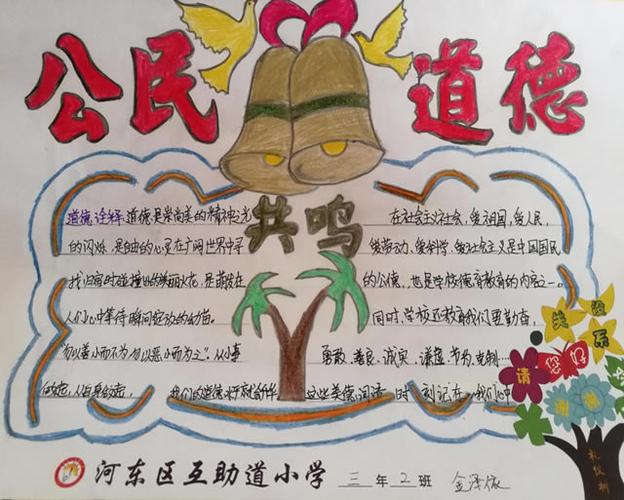 公民道德
共鸣
道德诠释:道德是崇尚美的精神之光
的闪烁,是自由的心灵在广阔世界中寻
找归宿时碰撞出的美丽火花,是萌发在
人们心中等待瞬间绽放的幼苗。
"勿以善小而不为,勿以恶小而为之",从小事
做起,从自身做起,我们的道德水平就会升华
在社会主义社会,爱祖国,爱人民,
爱劳动、爱科学、爱社会主义是中国国民
的公德,也是学校德育教育的内容之一。
同时,学校还教育我们要勤奋,
勇敢、善良、诚实、谦虚、节为
这些美德,同学 时刻记在 我们心中
没关系
请
你好
谢谢
河东区互助道小学
三年2班